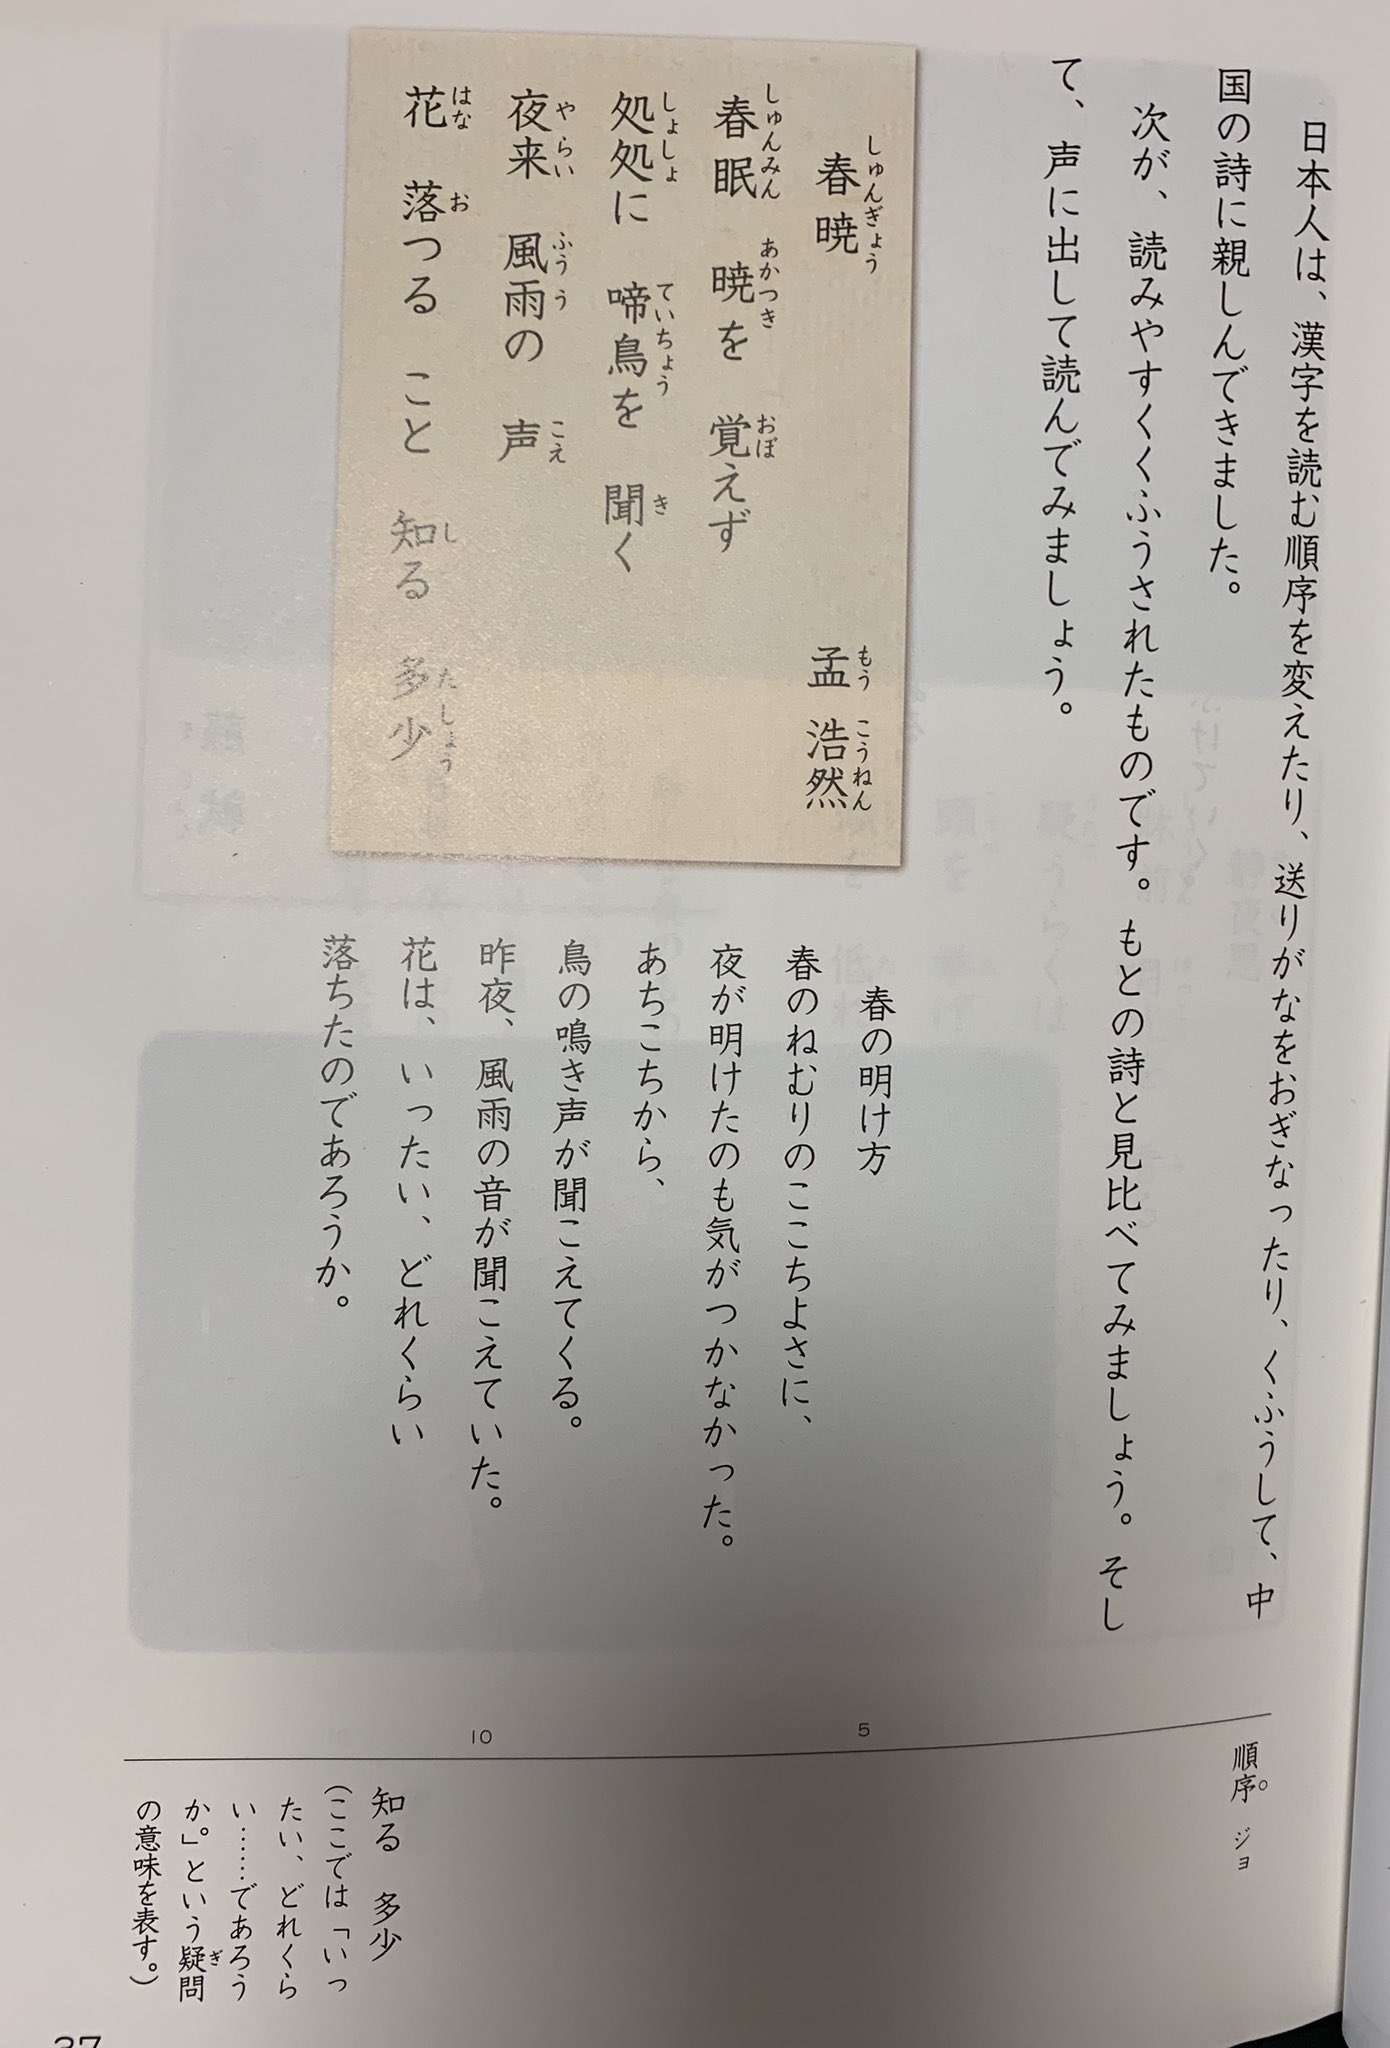 日本人は、漢字を読む順序を変えたり、送りがなをおぎなったり、くふうして、中
国の詩に親しんできました。
次が、読みやすくくふうされたものです。もとの詩と見比べてみましょう。そし
て、声に出して読んでみましょう。
しゅんぎょう
春暁
もう こうねん
孟 浩然
しゅんみん あかつき おぼ
春眠 暁を 覚えず
しょしょ ていちょう き
処処に 啼鳥を 聞く
やらい ふうう こえ
夜来 風雨の 声
はな お し たしょう
花 落つる こと 知る 多少
春の明け方
春のねむりのここちよさに、
夜が明けたのも気がつかなかった。
あちこちから、
鳥の鳴き声が聞こえてくる。
昨夜、風雨の音が聞こえていた。
花は、いったい、どれくらい
落ちたのであろうか。
5
10
順序 ジョ
知る 多少
(ここでは「いっ
たい、どれくら
い……であろう
か。」という疑問
ぎ
の意味を表す。)
37